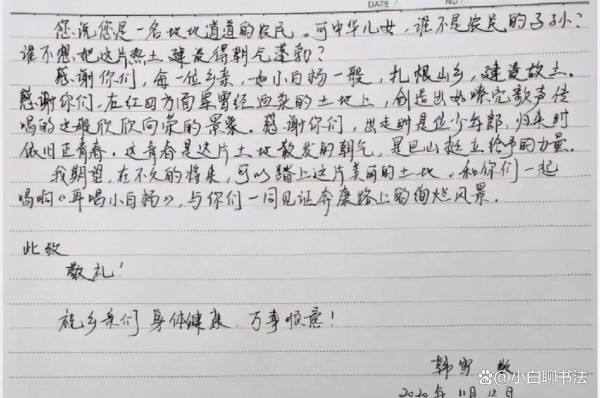 DATE
您说您是一名地地道道的农民。可中华儿女，谁不是农民的子孙？
谁不想把这片热土建设得朝气蓬勃？
感谢你们，每一位乡亲，如小白杨一般，扎根山乡，建设故土。
感谢你们，在红四方面军曾经血染的土地上，创造出如嘹亮歌声传
唱的这般欣欣向荣的景象。感谢你们，出走时是位少年郎，归来时
依旧正青春。这青春是这片土地散发的朝气，是巴山挺立给予的力量。
我期望，在不久的将来，可以踏上这片美丽的土地，和你们一起
唱响《再唱小白杨》，与你们一同见证奔康路上的绚烂风景。
此致
敬礼！
祝乡亲们 身体健康，万事顺意！
韩雪
2020年11月12日
@小白聊书法